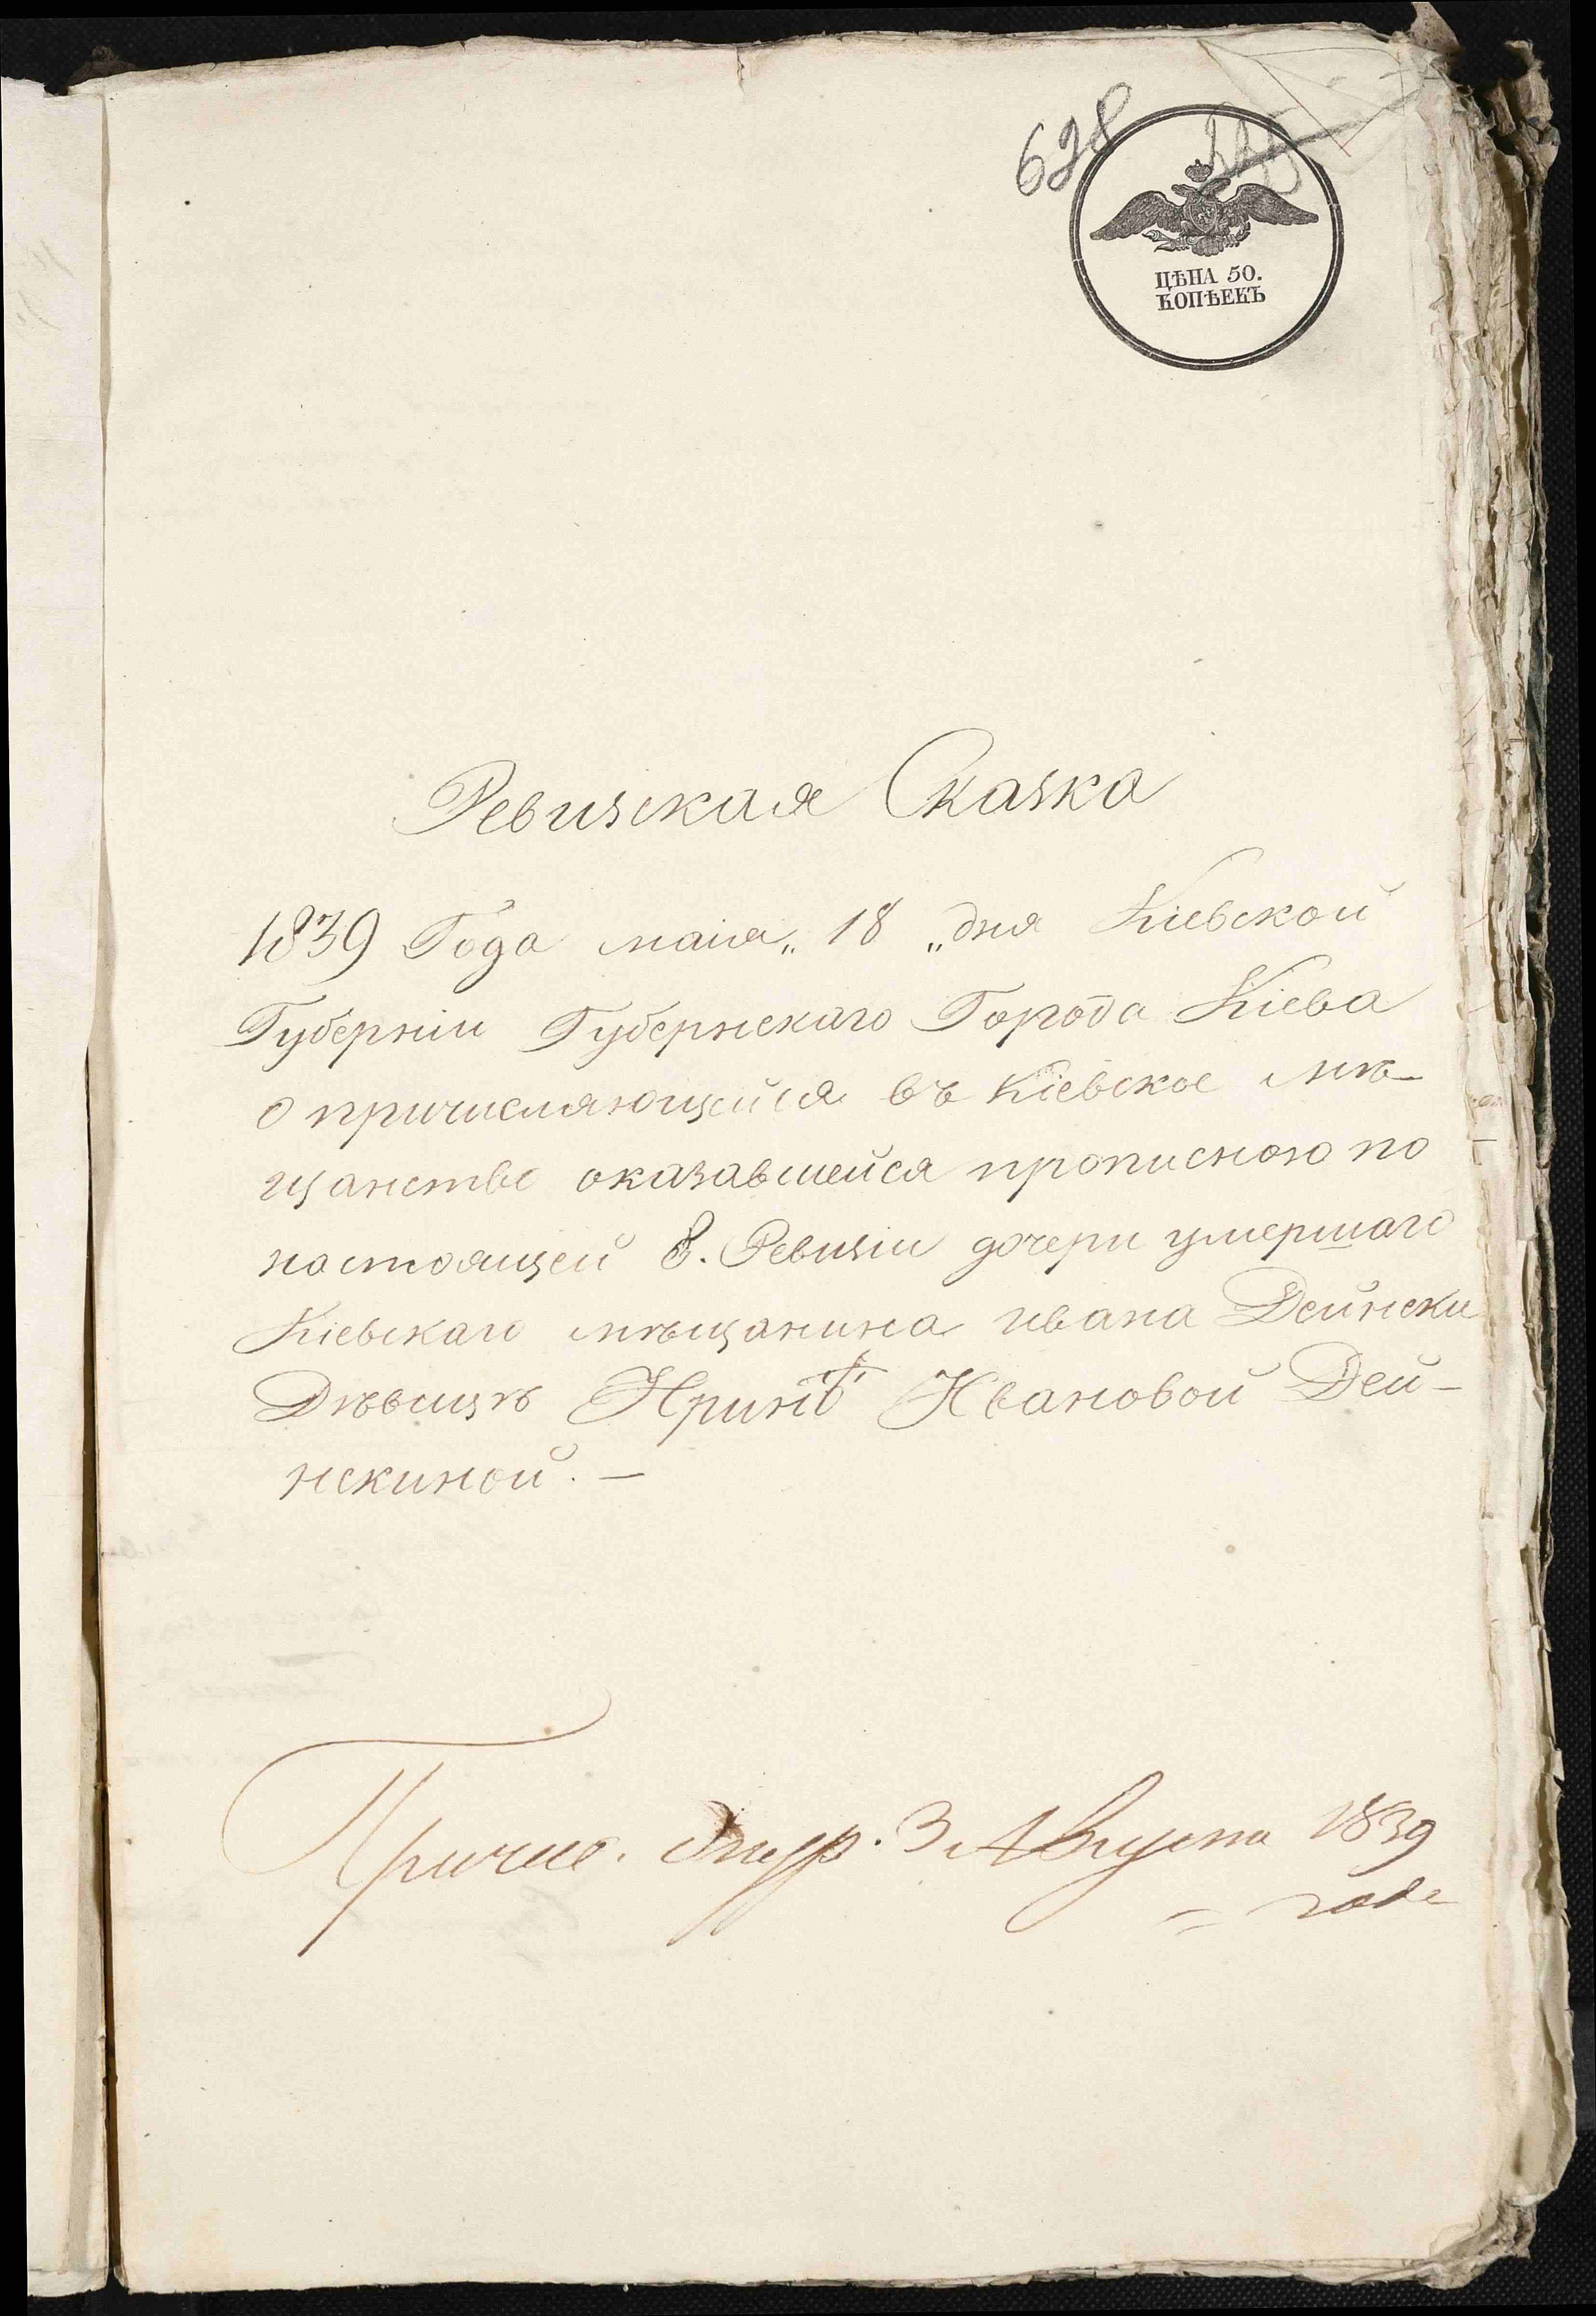 628
ЦѢНА 50.
КОПѢЕКЪ
Ревизская Сказка
1839 Года маія „ 18 „ дня Кіевской
Губерніи Губернскаго Города Кіева
о причисляющейся въ Кіевское мѣ-
щанство оказавшейся прописною по
настоящей 8. Ревизіи дочери умершаго
Кіевскаго мѣщанина ивана Дейнеки
Дѣвицѣ Иринѣ Ивановой Дей-
некиной. —
Причис. 3 Августа 1839
= года